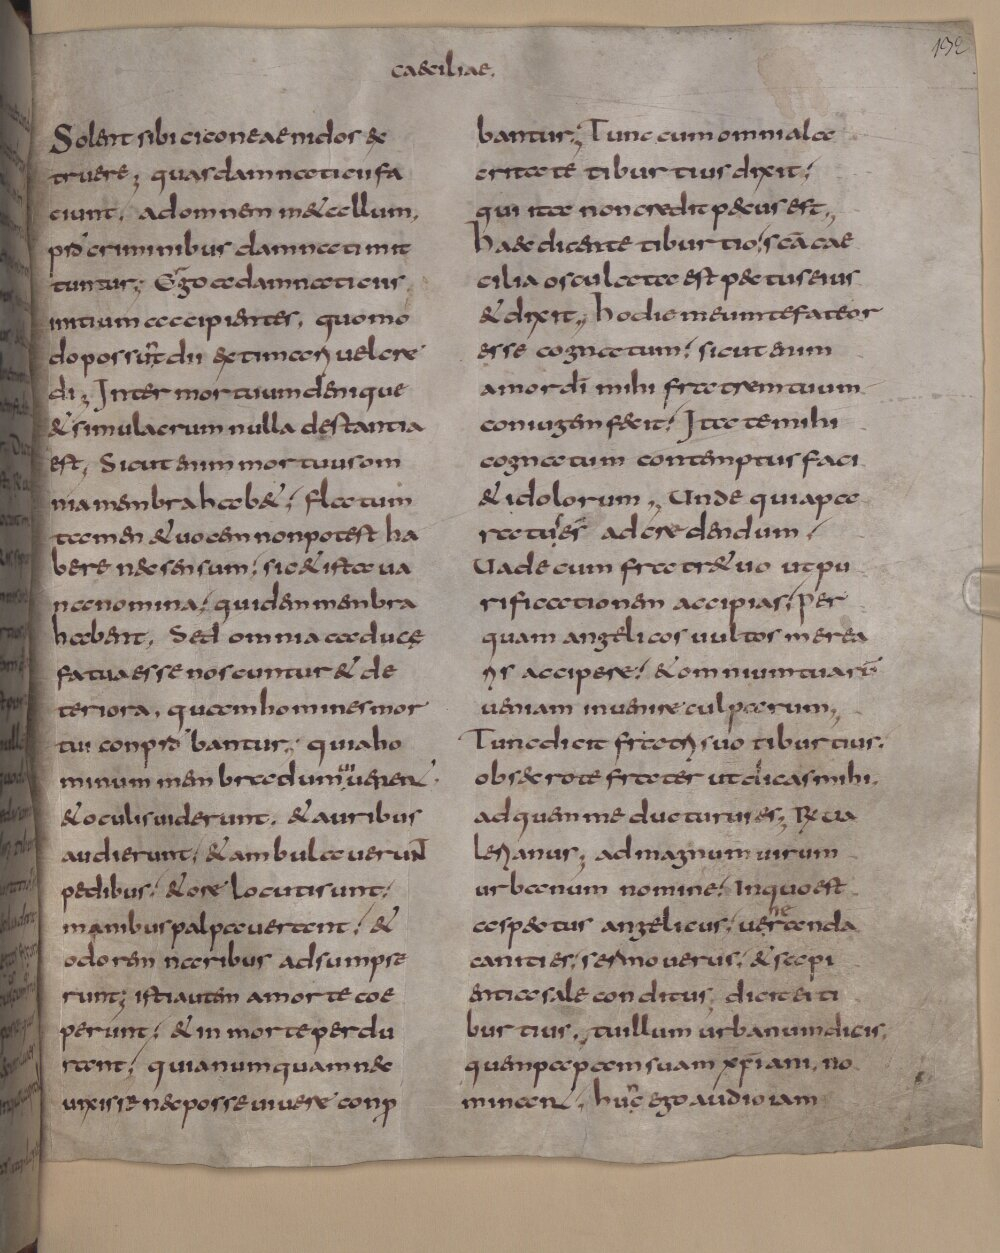 caeciliae.
132
Solent sibi ciconeae nidos ex
truere; quasdam naticu fa
ciunt. ad omnem in & cellum.
pro criminibus damnati mit
tuntur; Ergo a damnaticius
initium accipientes. quomo
do possunt dii extimari vel cre
di; Inter mortuum denique
& simulacrum nulla destantia
est; Sicut enim mortuus om
nia menbra hab&; flatum
tamen & vocem non potest ha
bere nec sensum; sic & ista va
na nomina; quidem menbra
habent. Sed omnia caduce
fatua esse noscuntur & de
teriora. quam homines mor
tui conprobantur; quia ho
minum menbra dum viverent.
& oculis viderunt. & auribus
audierunt; & ambulaverunt
pedibus; & ore locuti sunt;
manibus palpaverant; &
odorem naribus adsumpse
runt; isti autem a morte coe
perunt; & in morte perdu
rant; quia numquam nec
vixisse nec posse vivere conp
bantur; Tunc cum omni ala
critate tiburtius dixit;
qui ita non credit pecus est,,
Haec dicente tiburtio; sca cae
cilia osculata est pectus eius
& dixit,, hodie meum te fateor
esse cognatum; sicut enim
amor di mihi fratrem tuum
coniugem fecit; Ita te mihi
cognatum contemptus faci
& idolorum,, Unde quia pa
ratus es ad credendum;
Vade cum fratre tuo ut pu
rificationem accipias; Per
quam angelicos vultos merea
ris accipere; & omnium tuarum
veniam invenire culparum,,
Tunc dicit fratri suo tiburtius;
obsecro te frater ut dicas mihi.
ad quem me ducturus es; Rx va
lerianus; ad magnum virum
urbanum nomine; In quo est
aspectus angelicus; veneranda
canities; sermo verus; & sapi
entia sale conditus; dicit ei ti
burtius,, tu illum urbanum dicis.
quem papam suam xpiani. no
minant; hunc ego audio iam